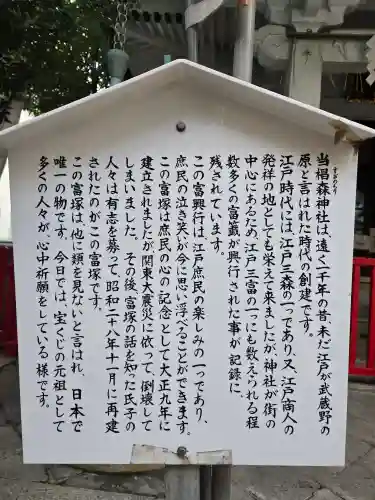 当椙森神社は、遠く一千年の昔、未だ江戸が武蔵野の
すぎのもり
原と言われた時代の創建です。
江戸時代には、江戸三森の一つであり、又、江戸商人の
発祥の地としても栄えて来ましたが、神社が街の
中心にあるため、江戸三富の一つにも数えられる程
数多くの富籤が興行された事が記録に、
残されています。
この富興行は、江戸庶民の楽しみの一つであり、
庶民の泣き笑いが今に思い浮べることができます。
この富塚は庶民の心の記念として大正九年に
建立されましたが関東大震災に依って、倒壊して
しまいました。その後、富塚の話を知った氏子の
人々は有志を募って、昭和二十八年十一月に再建
されたのがこの富塚です。
この富塚は、他に類を見ないと言はれ、日本で
唯一の物です。今日では、宝くじの元祖として
多くの人々が、心中祈願をしている様です。